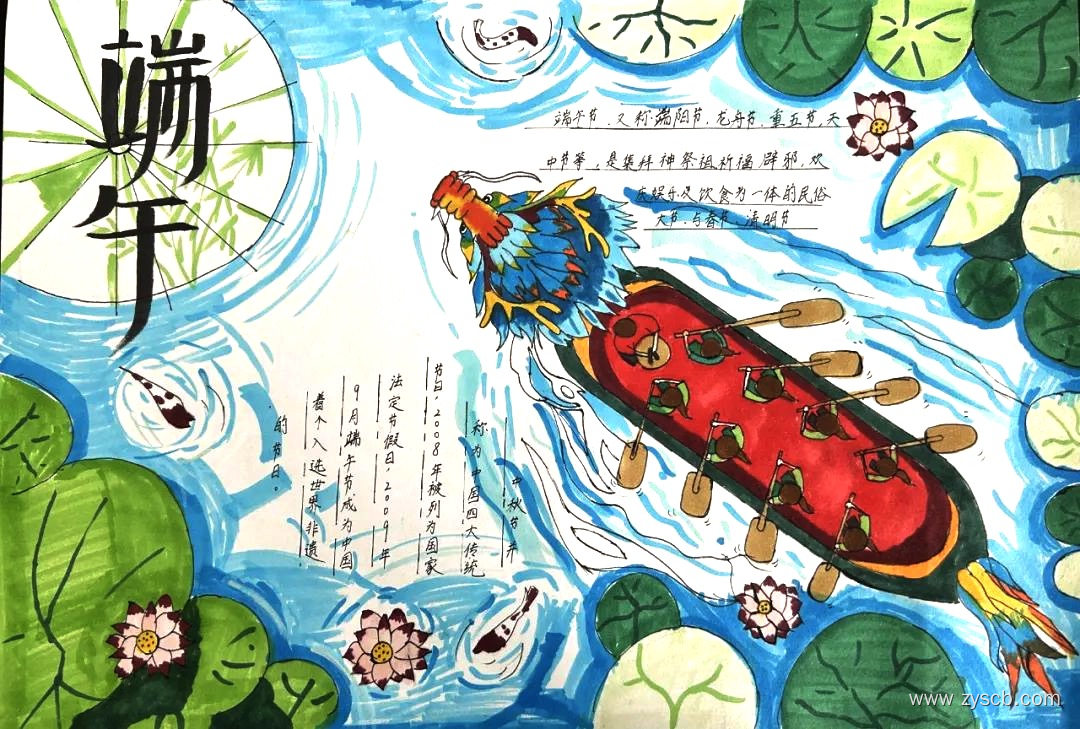 端午
端午节,又称端阳节、龙舟节、重五节、天
中节等,是集拜神祭祖祈福辟邪,欢
庆娱乐及饮食为一体的民俗
大节.与春节、清明节
中秋节并
称为中国四大传统
节日,2008年被列为国家
法定节假日,2009年
9月端午节成为中国
首个入选世界非遗
的节日。
www.zyscb.com